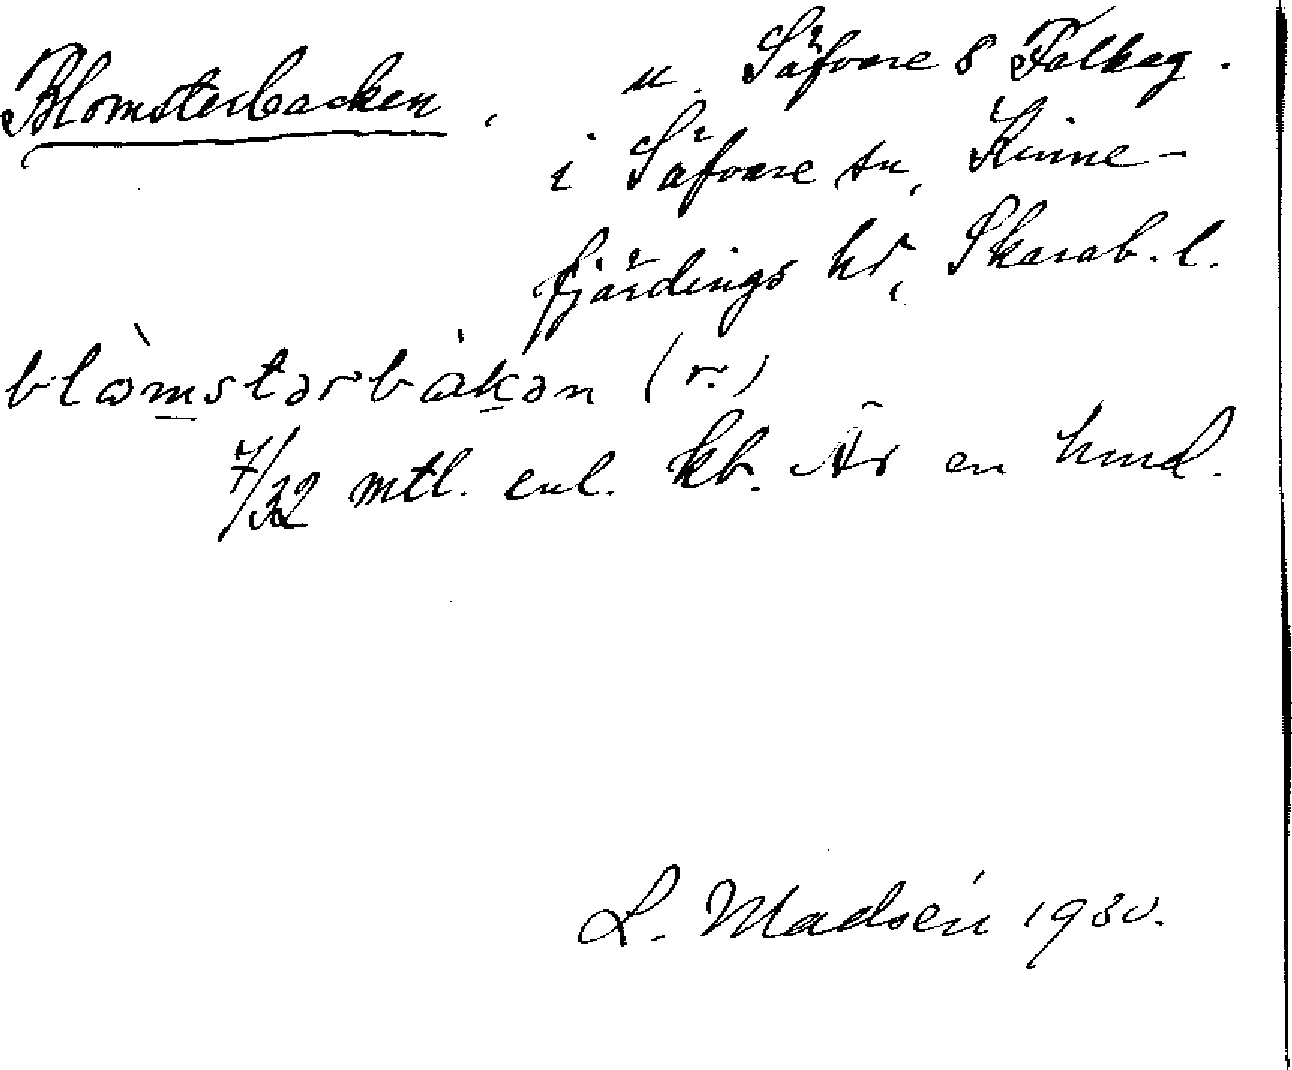 Blomsterbacken, u. Säfvare 8 Falkag.
i Säfvare sn, Kinne-
fjärdings hd, Skarab. l.
blòmstərbàkən (r.)
7/32 mtl. enl. kb. Är en hmd.
L. Madsén 1930.